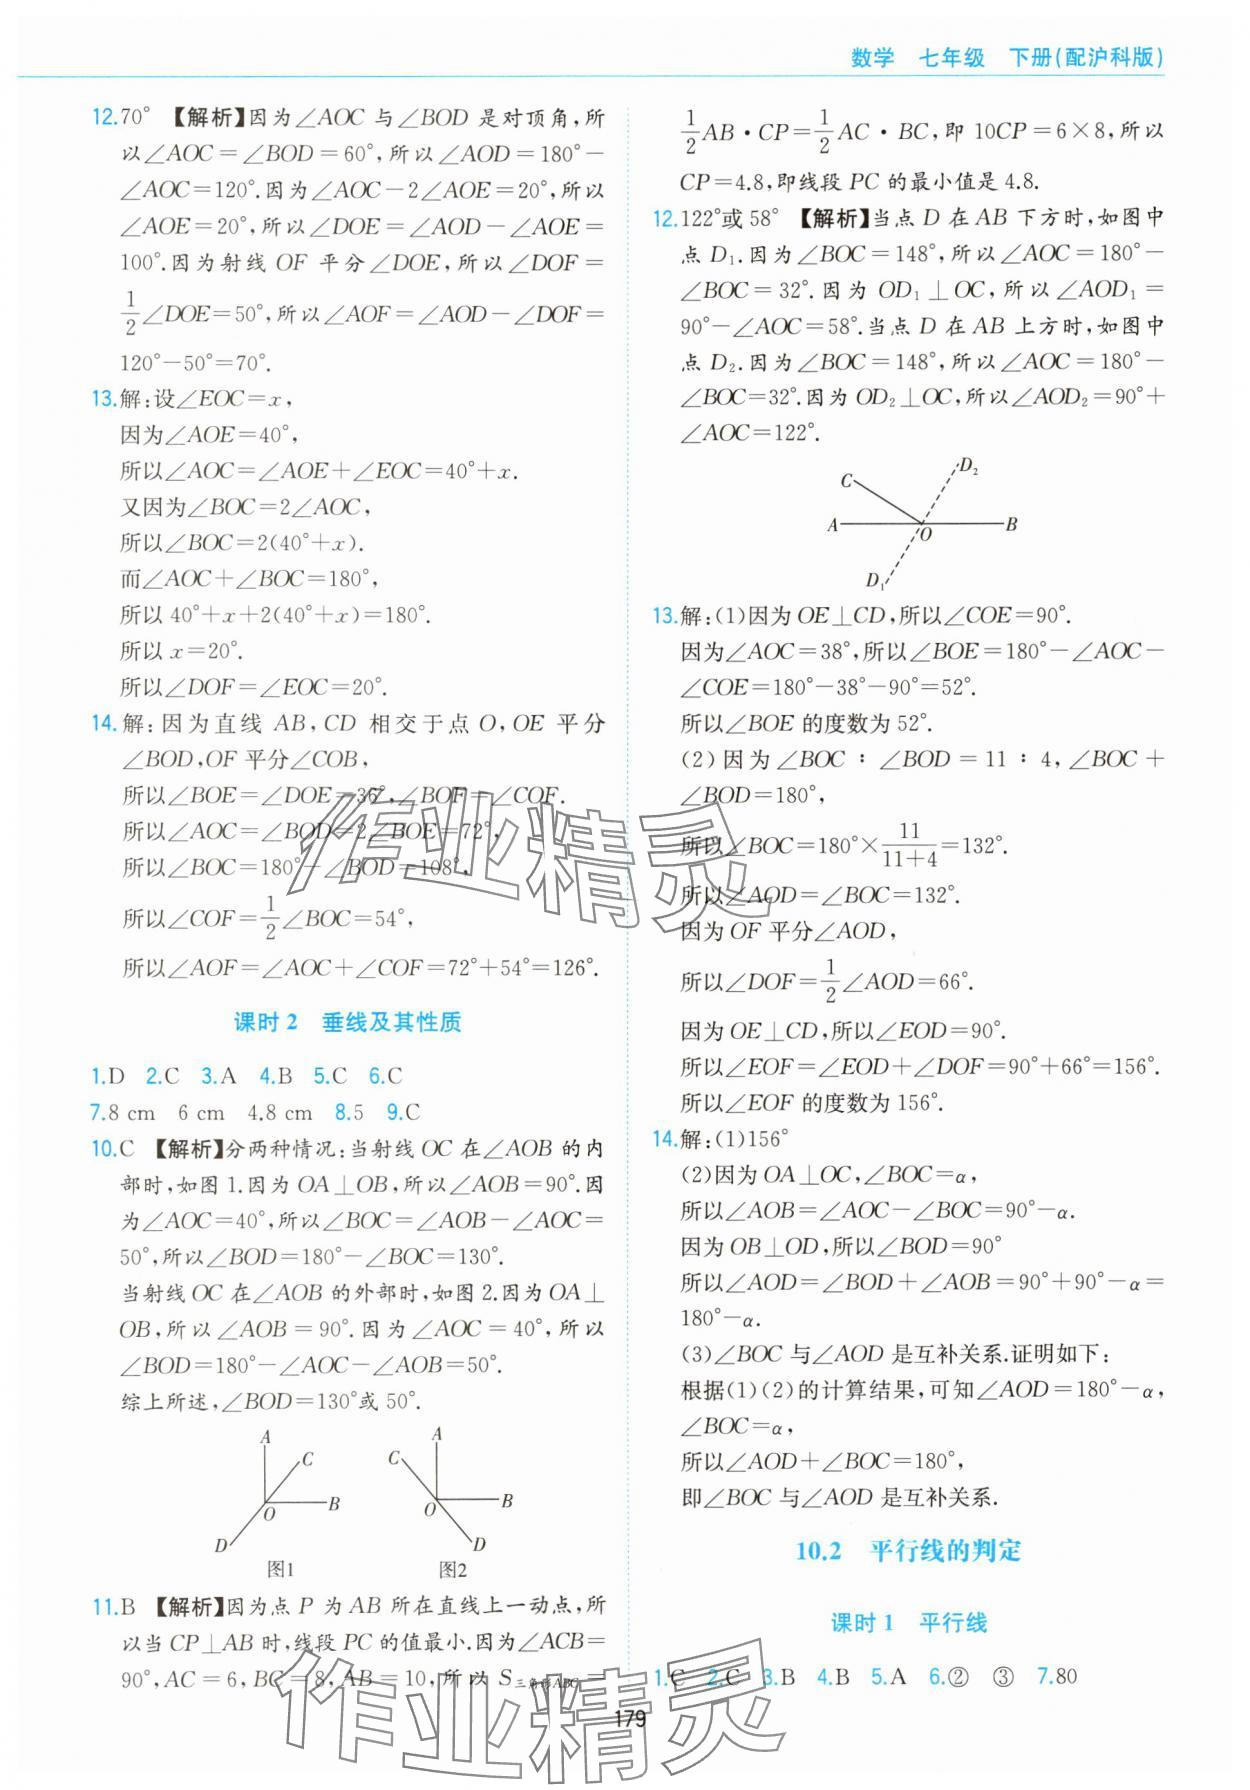 数学 七年级 下册(配沪科版)
12.70° 【解析】因为∠AOC 与∠BOD 是对顶角,所
以∠AOC=∠BOD=60°,所以∠AOD=180°-
∠AOC=120°.因为∠AOC-2∠AOE=20°,所以
∠AOE=20°,所以∠DOE=∠AOD-∠AOE=
100°.因为射线 OF 平分∠DOE,所以∠DOF=
1/2∠DOE=50°,所以∠AOF=∠AOD-∠DOF=
120°-50°=70°.
13.解:设∠EOC=x,
因为∠AOE=40°,
所以∠AOC=∠AOE+∠EOC=40°+x.
又因为∠BOC=2∠AOC,
所以∠BOC=2(40°+x).
而∠AOC+∠BOC=180°,
所以 40°+x+2(40°+x)=180°.
所以 x=20°.
所以∠DOF=∠EOC=20°.
14.解:因为直线 AB,CD 相交于点 O,OE 平分
∠BOD,OF 平分∠COB,
所以∠BOE=∠DOE=36°,∠BOF=∠COF.
所以∠AOC=∠BOD=2∠BOE=72°,
所以∠BOC=180°-∠BOD=108°,
所以∠COF=1/2∠BOC=54°,
所以∠AOF=∠AOC+∠COF=72°+54°=126°.
课时 2 垂线及其性质
1.D 2.C 3.A 4.B 5.C 6.C
7.8 cm 6 cm 4.8 cm 8.5 9.C
10.C 【解析】分两种情况:当射线 OC 在∠AOB 的内
部时,如图 1.因为 OA⊥OB,所以∠AOB=90°.因
为∠AOC=40°,所以∠BOC=∠AOB-∠AOC=
50°,所以∠BOD=180°-∠BOC=130°.
当射线 OC 在∠AOB 的外部时,如图 2.因为 OA⊥
OB,所以∠AOB=90°.因为∠AOC=40°,所以
∠BOD=180°-∠AOC-∠AOB=50°.
综上所述,∠BOD=130°或 50°.
A C O B D
图1
A C O B D
图2
11.B 【解析】因为点 P 为 AB 所在直线上一动点,所
以当 CP⊥AB 时,线段 PC 的值最小.因为∠ACB=
90°,AC=6,BC=8,AB=10,所以 S三角形ABC=
1/2AB·CP=1/2AC·BC,即 10CP=6×8,所以
CP=4.8,即线段 PC 的最小值是 4.8.
12.122°或 58° 【解析】当点 D 在 AB 下方时,如图中
点 D₁.因为∠BOC=148°,所以∠AOC=180°-
∠BOC=32°.因为 OD₁⊥OC,所以∠AOD₁=
90°-∠AOC=58°.当点 D 在 AB 上方时,如图中
点 D₂.因为∠BOC=148°,所以∠AOC=180°-
∠BOC=32°.因为 OD₂⊥OC,所以∠AOD₂=90°+
∠AOC=122°.
C D₂ A O B D₁
13.解:(1)因为 OE⊥CD,所以∠COE=90°.
因为∠AOC=38°,所以∠BOE=180°-∠AOC-
∠COE=180°-38°-90°=52°.
所以∠BOE 的度数为 52°.
(2)因为∠BOC∶∠BOD=11∶4,∠BOC+
∠BOD=180°,
所以∠BOC=180°×11/(11+4)=132°.
所以∠AOD=∠BOC=132°.
因为 OF 平分∠AOD,
所以∠DOF=1/2∠AOD=66°.
因为 OE⊥CD,所以∠EOD=90°.
所以∠EOF=∠EOD+∠DOF=90°+66°=156°.
所以∠EOF 的度数为 156°.
14.解:(1)156°
(2)因为 OA⊥OC,∠BOC=α,
所以∠AOB=∠AOC-∠BOC=90°-α.
因为 OB⊥OD,所以∠BOD=90°
所以∠AOD=∠BOD+∠AOB=90°+90°-α=
180°-α.
(3)∠BOC 与∠AOD 是互补关系.证明如下:
根据(1)(2)的计算结果,可知∠AOD=180°-α,
∠BOC=α,
所以∠AOD+∠BOC=180°,
即∠BOC 与∠AOD 是互补关系.
10.2 平行线的判定
课时 1 平行线
1.C 2.C 3.B 4.B 5.A 6.② ③ 7.80
179
作业精灵
作业精灵